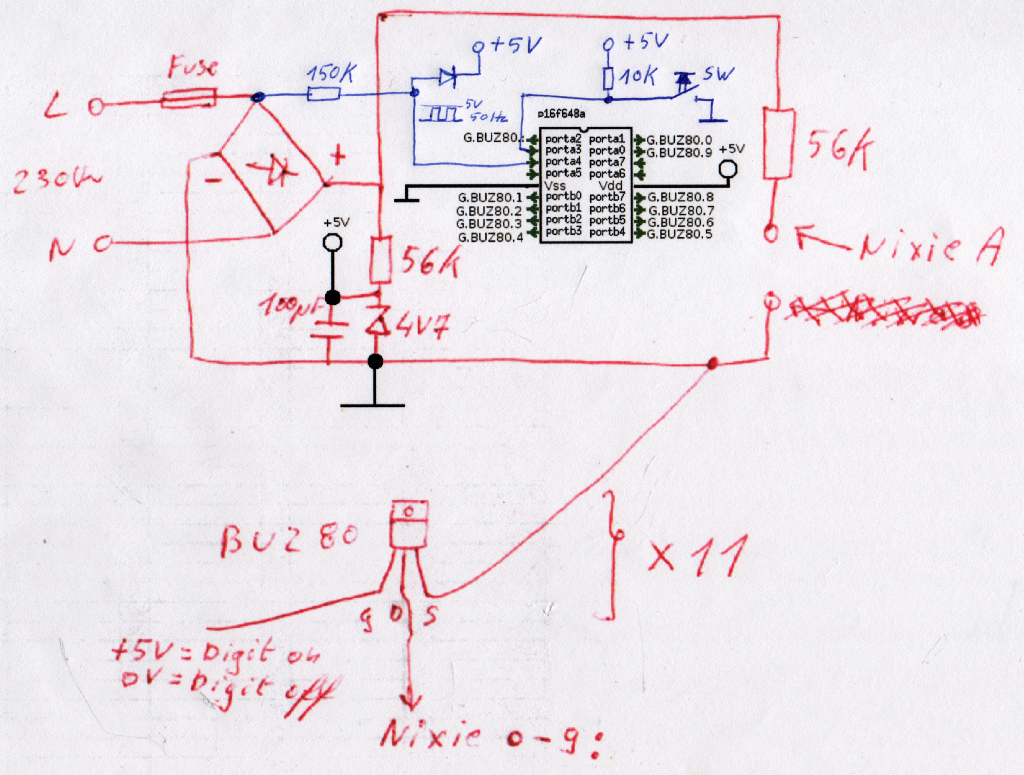 Fuse
L
230V~
N
150K
+5V
5V
50Hz
+5V
10K
SW
p16f648a
G.BUZ80.
porta2 porta1
porta3 porta0
porta4 porta7
porta5 porta6
Vss Vdd
portb0 portb7
portb1 portb6
portb2 portb5
portb3 portb4
G.BUZ80.0
G.BUZ80.9
+5V
G.BUZ80.1
G.BUZ80.2
G.BUZ80.3
G.BUZ80.4
G.BUZ80.8
G.BUZ80.7
G.BUZ80.6
G.BUZ80.5
56K
Nixie A
-
+
+5V
56K
100µF
4V7
BUZ80
g D S
x 11
+5V = Digit on
0V = Digit off
Nixie 0-9: